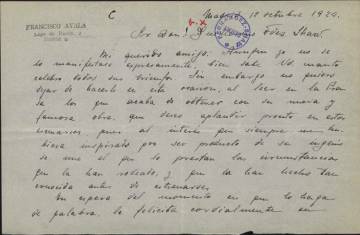 C
Madrid 18 octubre 1924.
FRANCISCO AYALA
Lope de Rueda,
MADRID
Sr. Don
Mi querido amigo: Aunque yo no se
lo manifieste expresamente, bien sabe Vd. cuanto
celebro todos sus triunfos. Sin embargo no puedo
dejar de hacerlo en esta ocasión, al leer en la Prensa
los que acaba de obtener con su nueva y
famosa obra, que deseo aplaudir pronto en estos
escenarios, pues al interés que siempre me hu-
biera inspirado por ser producto de su ingenio
se une el que le prestan las circunstancias
que la han rodeado, y que la han hecho tan
conocida antes de estrenarse.
En espera del momento en que lo haga
de palabra, le felicita cordialmente su